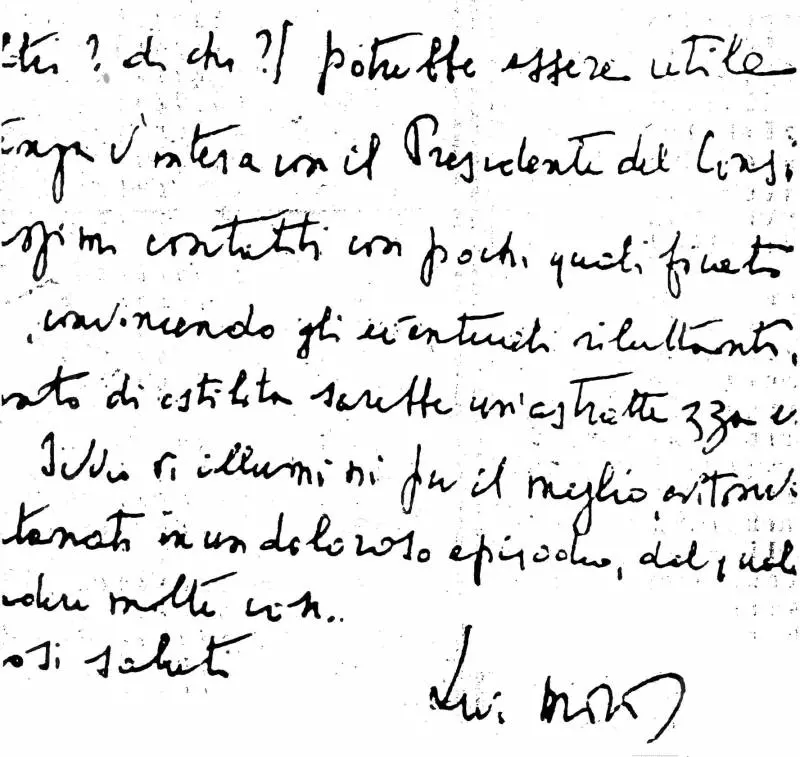 ltri ? di chi ?) potrebbe essere utile
tenga d'intesa con il Presidente del Consi
ssimi contatti con pochi qualificati
, convincendo gli eventuali riluttanti.
mento di ostilità sarebbe un'astrattezza e
Iddio vi illumini per il meglio, evitando
tanati in un doloroso episodio, dal quale
ndere molte cose.
osi saluti
Moro